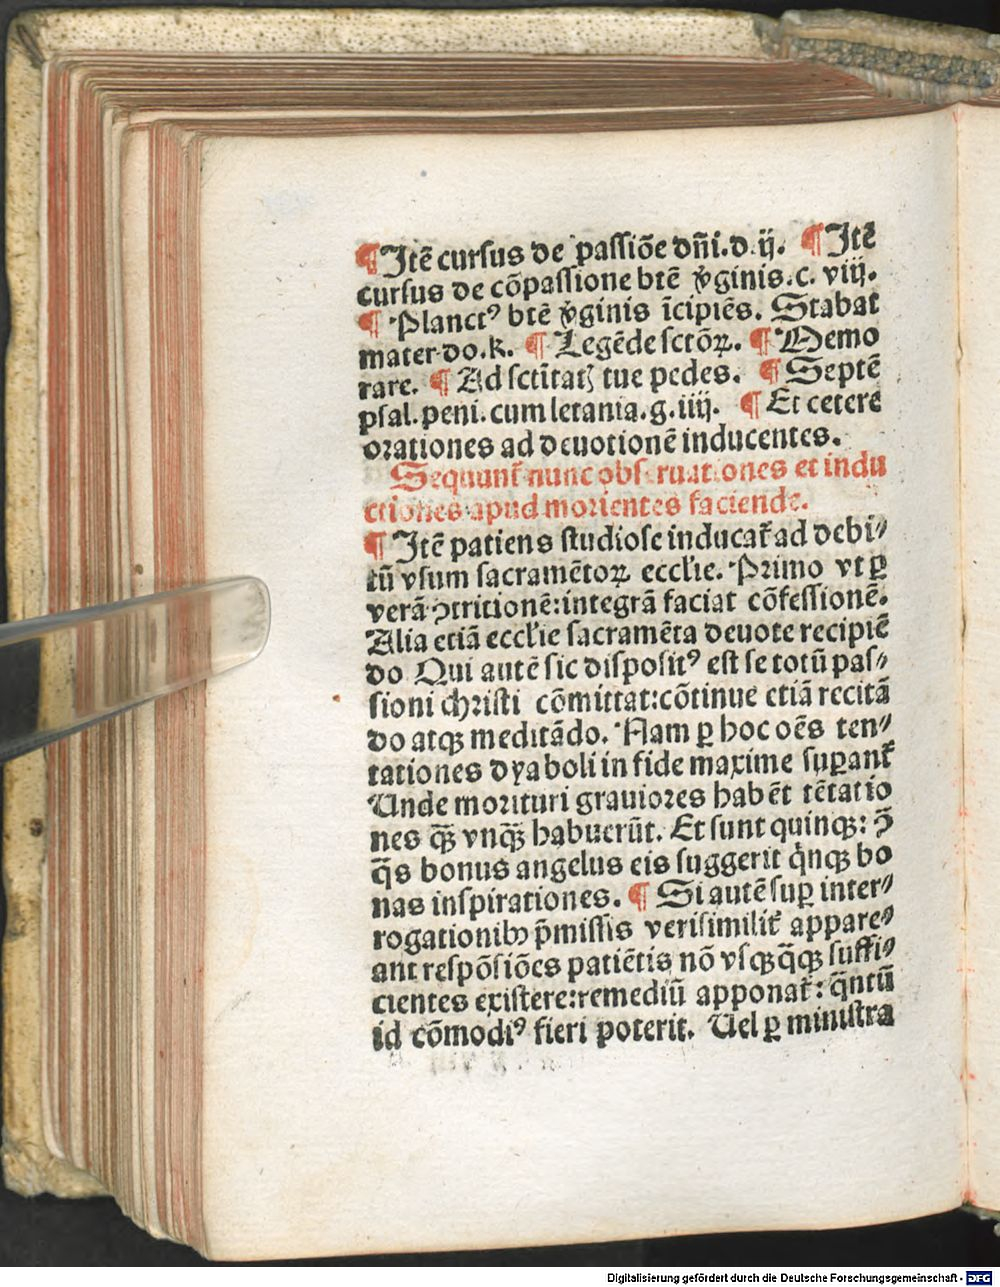 ¶ Jtē cursus de passiōe dñi.d.ij. ¶ Jtē
cursus de cōpassione btē v̄ginis.c. viij.
¶ Planctꝰ btē v̄ginis īcipiēs. Stabat
mater do.k. ¶ Legēde sctōꝝ. ¶ Memo
rare. ¶ Ad sctītatꝫ tue pedes. ¶ Septē
psal.peni.cum letania.g.iiij. ¶ Et cetere
orationes ad deuotionē inducentes.
Sequunt̄ nunc obseruationes et indu
ctiones apud morientes faciende.
¶ Jtē patiens studiose inducat̄ ad debi⸗
tū vsum sacramētoꝝ eccl'ie. Primo vt ꝑ
verā ꝯtritionē:integrā faciat cōfessionē.
Alia etiā eccl'ie sacramēta deuote recipiē
do Qui autē sic dispositꝰ est se totū pas⸗
sioni christi cōmittat:cōtinue etiā recitā
do atqꝫ meditādo. Nam ꝑ hoc oēs ten⸗
tationes dyaboli in fide maxime suꝑant̄
Unde morituri grauiores habēt tētatio
nes qꝫ̄ vnqꝫ̄ habuerūt. Et sunt quinqꝫ: ꝯ̄
q̄s bonus angelus eis suggerit q̇nqꝫ bo
nas inspirationes. ¶ Si autē suꝑ inter⸗
rogationibꝫ p̄missis verisimilit̄ appare⸗
ant respōsiōes patiētis nō vsqꝫq̄qꝫ suffi⸗
cientes existere:remediū apponat̄: q̄ntū
id cōmodiꝰ fieri poterit. Uel ꝑ ministra
Digitalisierung gefördert durch die Deutsche Forschungsgemeinschaft - DFG